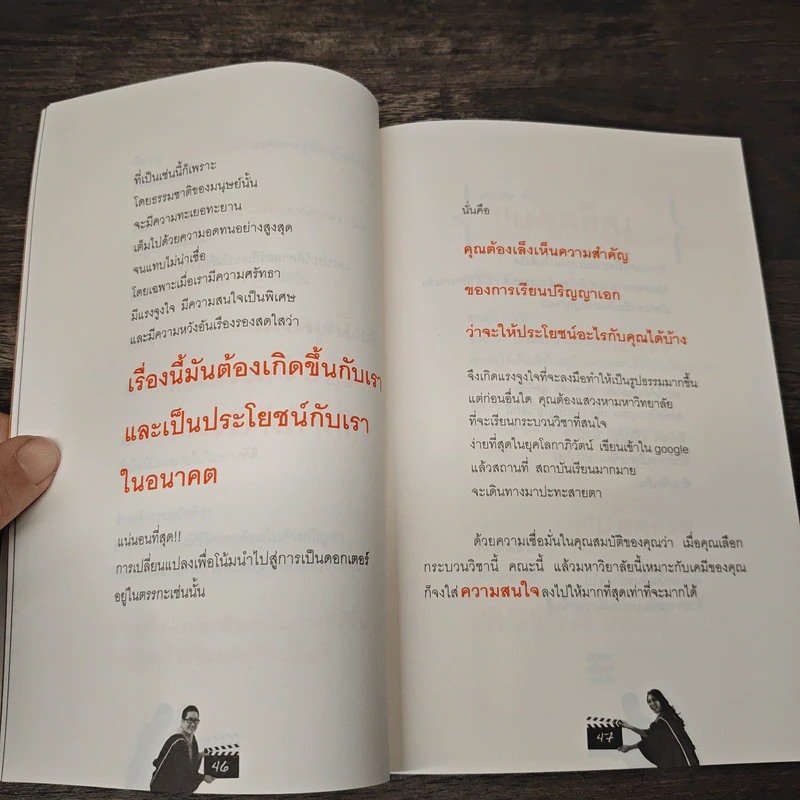 ที่เป็นเช่นนี้ก็เพราะ
โดยธรรมชาติของมนุษย์นั้น
จะมีความทะเยอทะยาน
เต็มไปด้วยความอดทนอย่างสูงสุด
จนแทบไม่น่าเชื่อ
โดยเฉพาะเมื่อเรามีความศรัทธา
มีแรงจูงใจ มีความสนใจเป็นพิเศษ
และมีความหวังอันเรืองรองสดใสว่า
เรื่องนี้มันต้องเกิดขึ้นกับเรา
และเป็นประโยชน์กับเรา
ในอนาคต
แน่นอนที่สุด!!
การเปลี่ยนแปลงเพื่อโน้มนำไปสู่การเป็นดอกเตอร์
อยู่ในตรรกะเช่นนั้น
46
นั่นคือ
คุณต้องเล็งเห็นความสำคัญ
ของการเรียนปริญญาเอก
ว่าจะให้ประโยชน์อะไรกับคุณได้บ้าง
จึงเกิดแรงจูงใจที่จะลงมือทำให้เป็นรูปธรรมมากขึ้น
แต่ก่อนอื่นใด คุณต้องแสวงหามหาวิทยาลัย
ที่จะเรียนกระบวนวิชาที่สนใจ
ง่ายที่สุดในยุคโลกาภิวัตน์ เขียนเข้าใน google
แล้วสถานที่ สถาบันเรียนมากมาย
จะเดินทางมาปะทะสายตา
ด้วยความเชื่อมั่นในคุณสมบัติของคุณว่า เมื่อคุณเลือก
กระบวนวิชานี้ คณะนี้ แล้วมหาวิยาลัยนี้เหมาะกับเคมีของคุณ
ก็จงใส่ความสนใจลงไปให้มากที่สุดเท่าที่จะมากได้
47